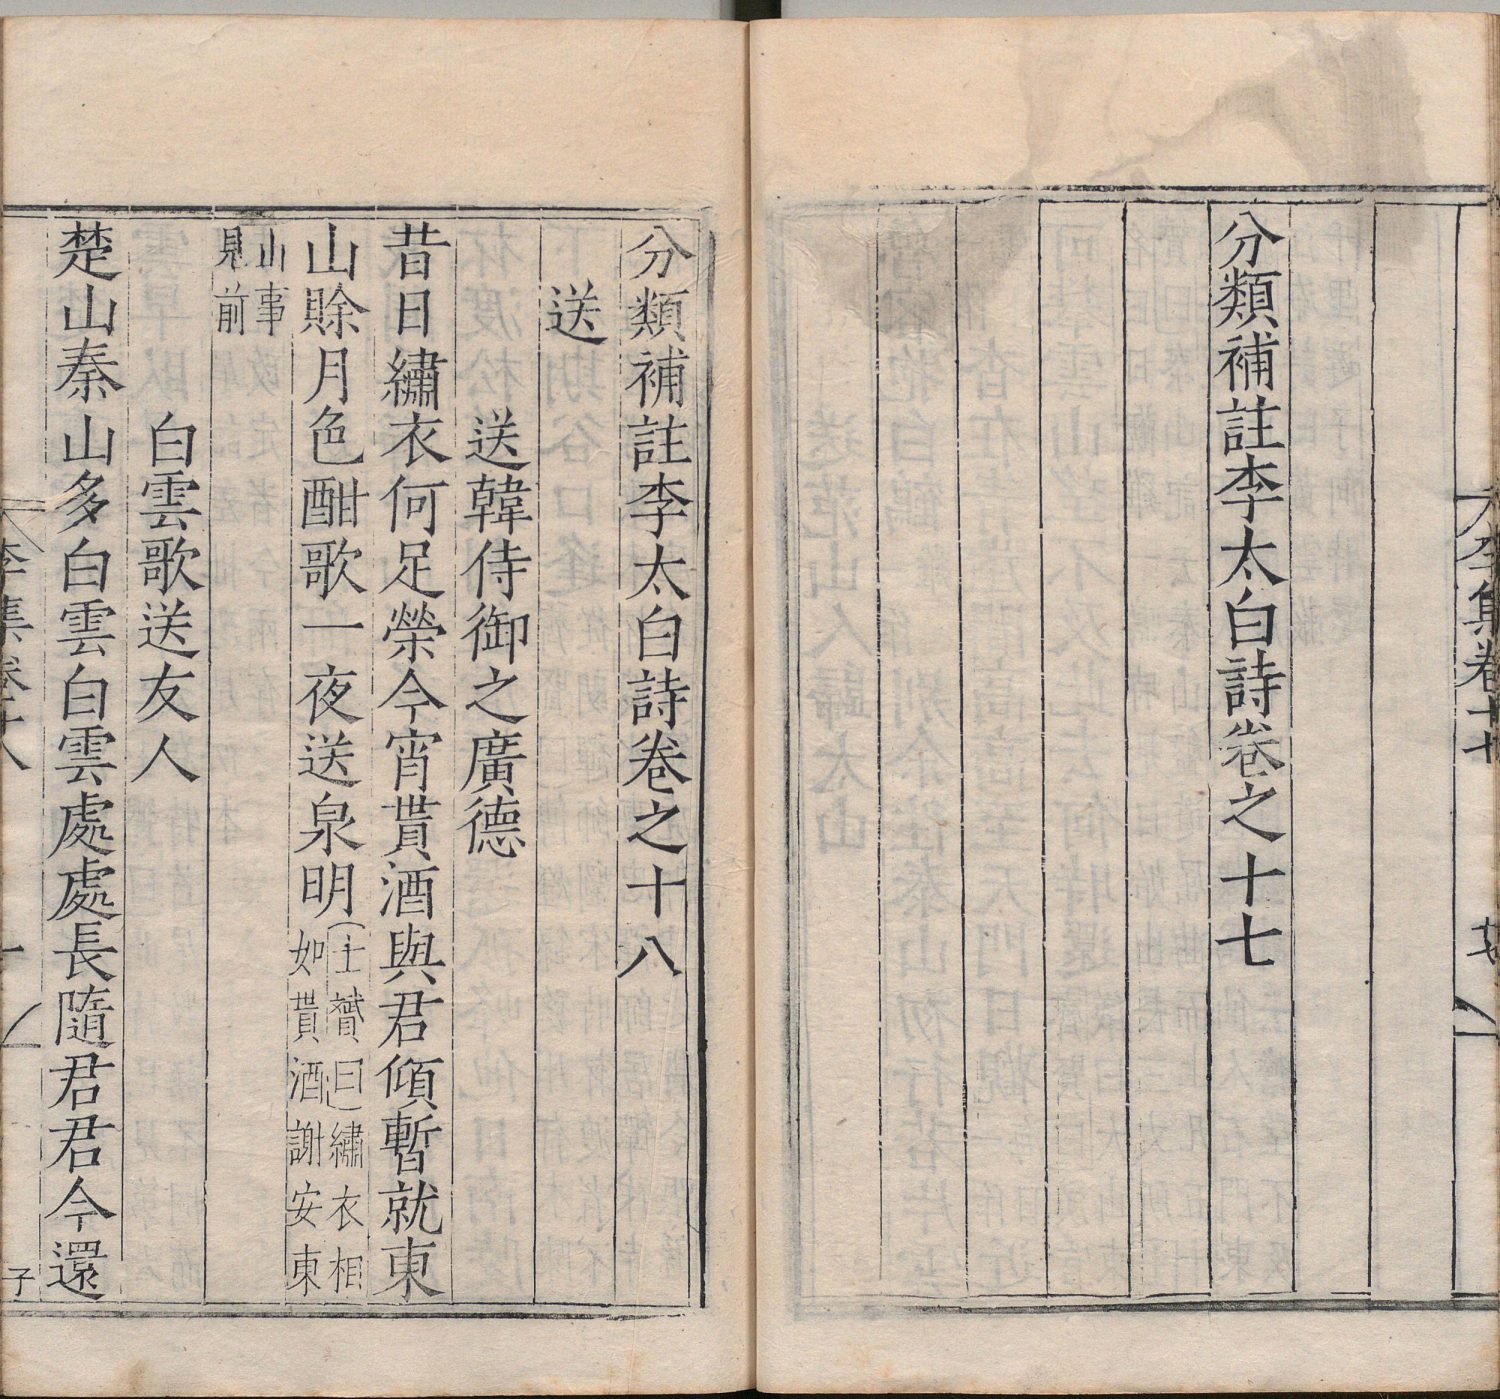 李集卷十七
分類補註李太白詩卷之十七
分類補註李太白詩卷之十八
送
送韓侍御之廣德
昔日繡衣何足榮今宵貰酒與君傾暫就東
山賖月色酣歌一夜送泉明
士贇曰繡衣相
如貰酒謝安東
山事
見前
白雲歌送友人
楚山秦山多白雲白雲處處長隨君君今還
李集卷十八
一
子